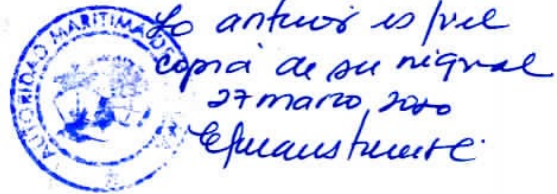 AUTORIDAD MARITIMA DE
Lo anterior es fiel
copia de su original
27 marzo, 2000